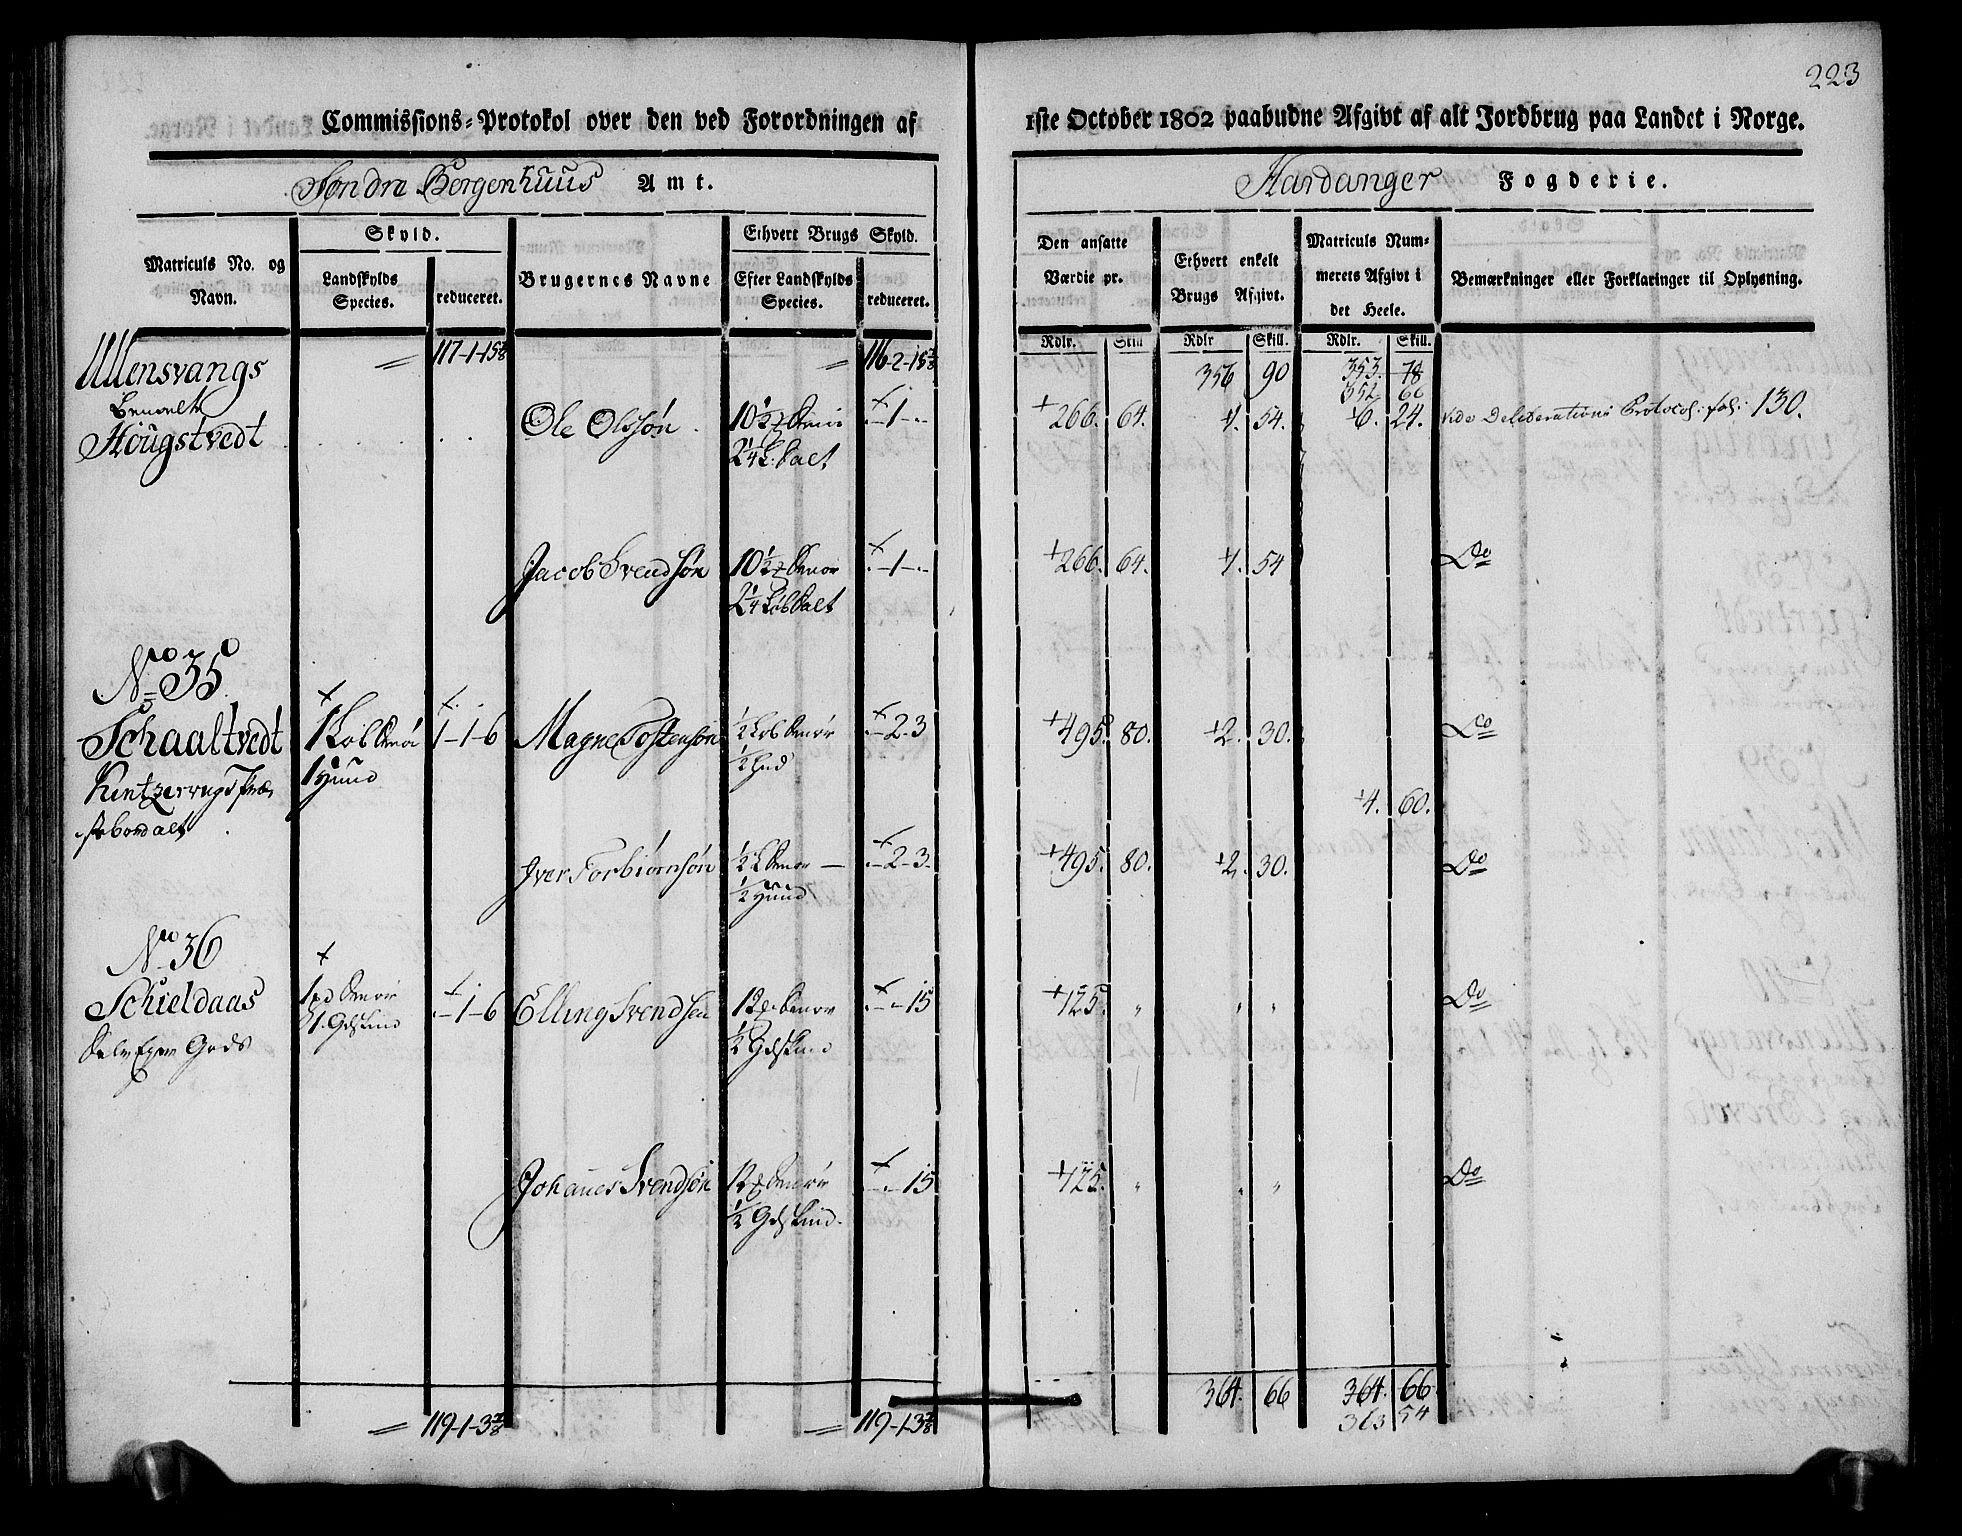 223
Commissions-Protokol over den ved Forordningen af 1ste October 1802 paabudne Afgivt af alt Jordbrug paa Landet i Norge.
Søndre Bergenhuus Amt. Hardanger Fogderie.
Skyld. Ethvert Brugs Skyld.
Matriculs No. og Navn. Landskylds Species. reduceret. Brugernes Navne Efter Landskylds Species. reduceret. Den ansatte Værdie pr. Ethvert enkelt Brugs Afgivt. Matriculs Nummerets Afgivt i det Heele. Bemærkninger eller Forklaringer til Oplysning.
Rdlr. Skill Rdlr Skill. Rdlr. Skill.
Ullensvangs = 117-1-15 7/8 = 116-2-15 7/8 356 90 353. 78
352 66
Hougstvedt Ole Olssøn 10 1/2 -1- 266. 64. 1. 54. 6. 24. vide Deliberations Protocol: fol: 130.
2 1/4 L. Salt
Jacob Svendsøn 10 1/2 -1- 266. 64. 1. 54 Do
2 1/4 Løb Salt
No 35
Schaaltvedt 1 Løb 1-1-6 Magne Tostensøn 1/2 Løb Smør -2-3 495. 80. 2. 30. Do
1 Huud 1/2 Hud
4. 60.
Iver Torbiørnsøn 1/2 L Smør -2-3 495. 80. 2. 30. Do
1/2 Huud
No 36
Schieldaas 1 pd Smør -1-6 Elling Svendsen Smør -15 125. " " " Do
1. Gdskind 1/2 Gdskind
Gods
Johannes Svendsøn Smør -15 125. " " " Do
1/2 Gdskind.
364. 66 364. 66
= 119-1-3 7/8 = 119-1-3 7/8 363 54